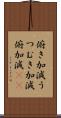 俯き加減う
つむき加減
俯加減